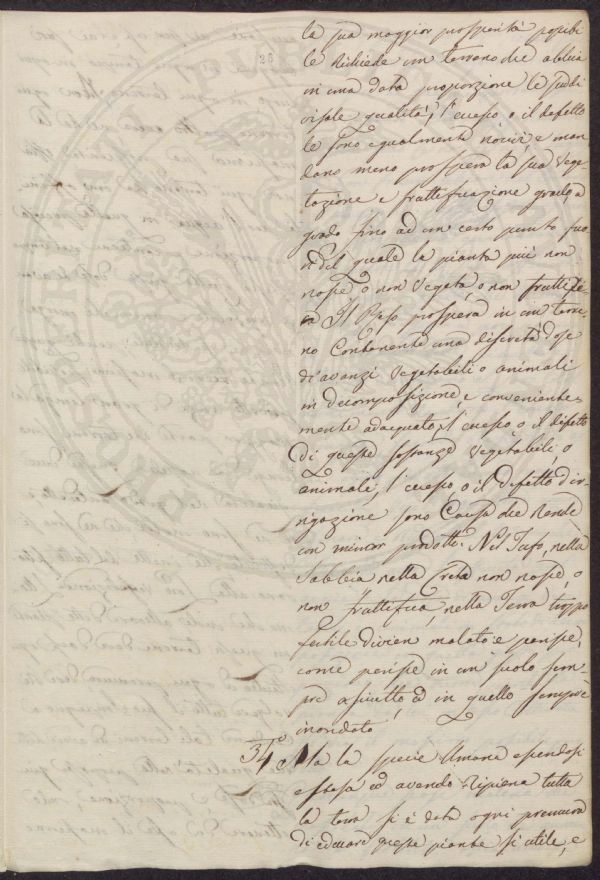 26
la sua maggior prosperità possibi
le richiede un terreno che abbia
in una data proporzione le suddi
visate qualità, l'eccesso o il difetto
le sono egualmente nocivi, e man
dano meno prospera la sua vege
tazione e fruttificazione grado, a
grado fino ad un certo punto fuo
ri del quale la pianta più non
nasce o non vegeta o non fruttife
ra Il Riso prospera in un terre
no Contenente una discreta dose
di avanzi vegetabili o animali
in decomposizione, e conveniente
mente adacquato, l'eccesso o il difetto
di queste sostanze vegetabili o
animali, l'eccesso o il difetto d'ir
rigazione sono Causa che Rende
un minor prodotto. Nel Tufo, nella
Sabbia nella Creta non nasce, o
non fruttifica, nella Terra troppo
fertile divien malato e perisce,
come perisce in un suolo sem
pre asciutto, ed in quello sempre
inondato
34° Ma la specie Umana essendosi
estesa ed avendo Ripiena tutta
la terra si è data ogni premura
di educare queste piante sì utile, e